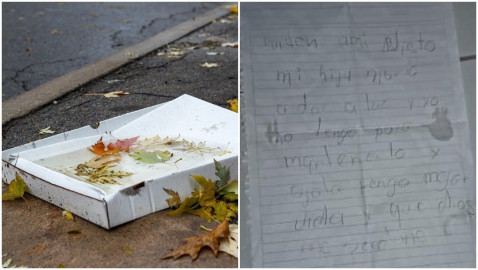 cuiden ami nieto
mi hija murio
a dar a luz y yo
no tengo para
mantenerlo y
ojala tenga mejor
vida y que dios